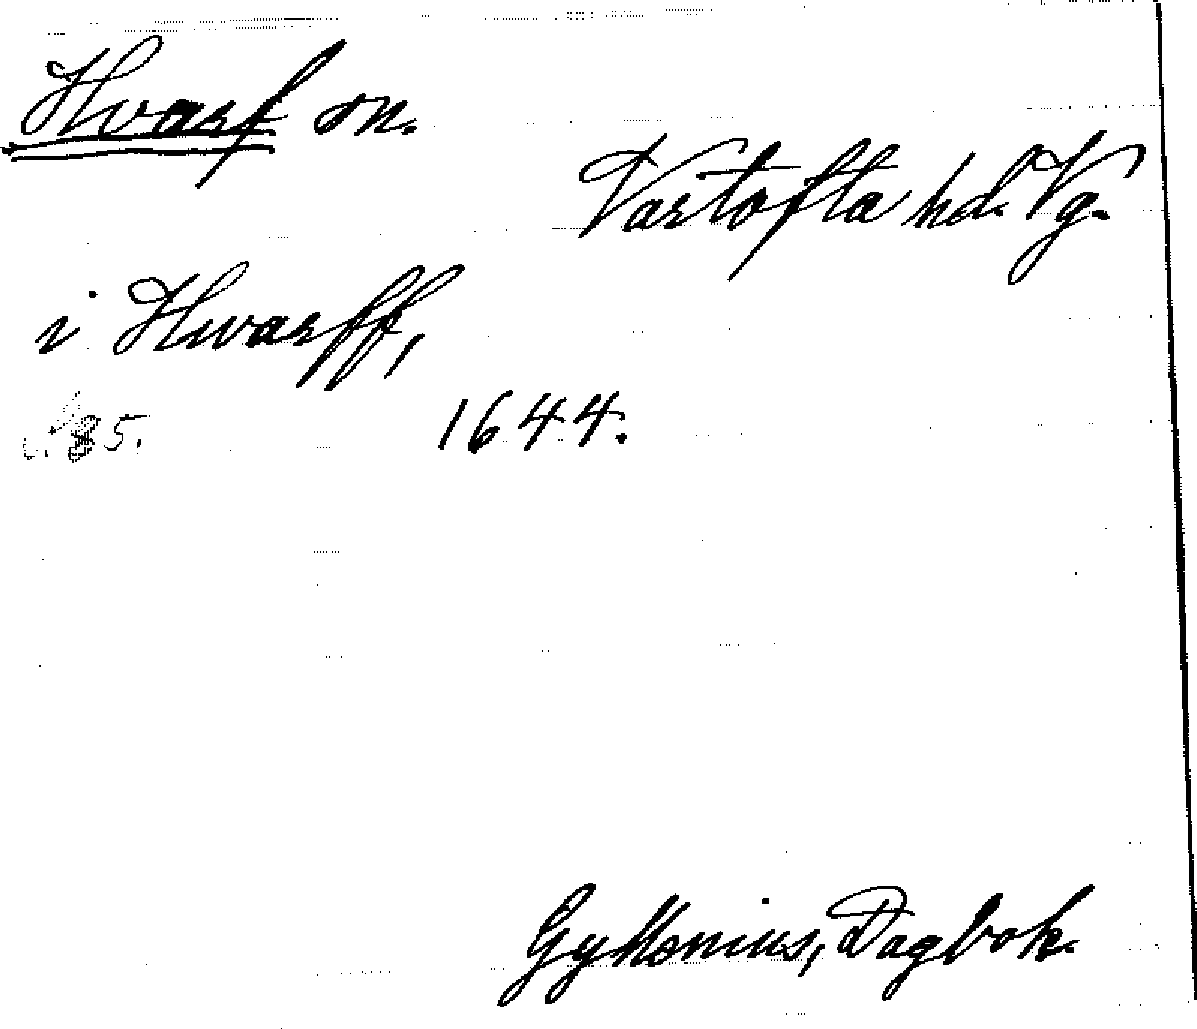 Hvarf sn.
Vartofta hd. Vg.
i Hwarff,
1644.
Gyllenius, Dagbok.